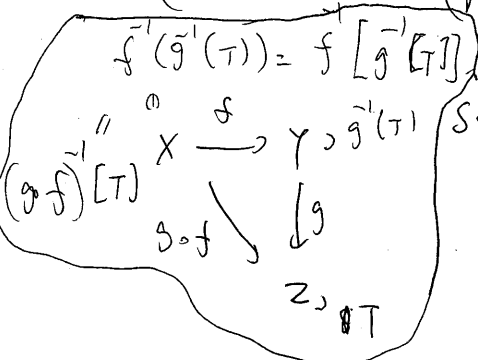 f⁻¹(g⁻¹(T)) = f⁻¹[g⁻¹[T]]
(g∘f)⁻¹[T] X f Y ⊃ g⁻¹(T)
g∘f g
Z ⊃ T